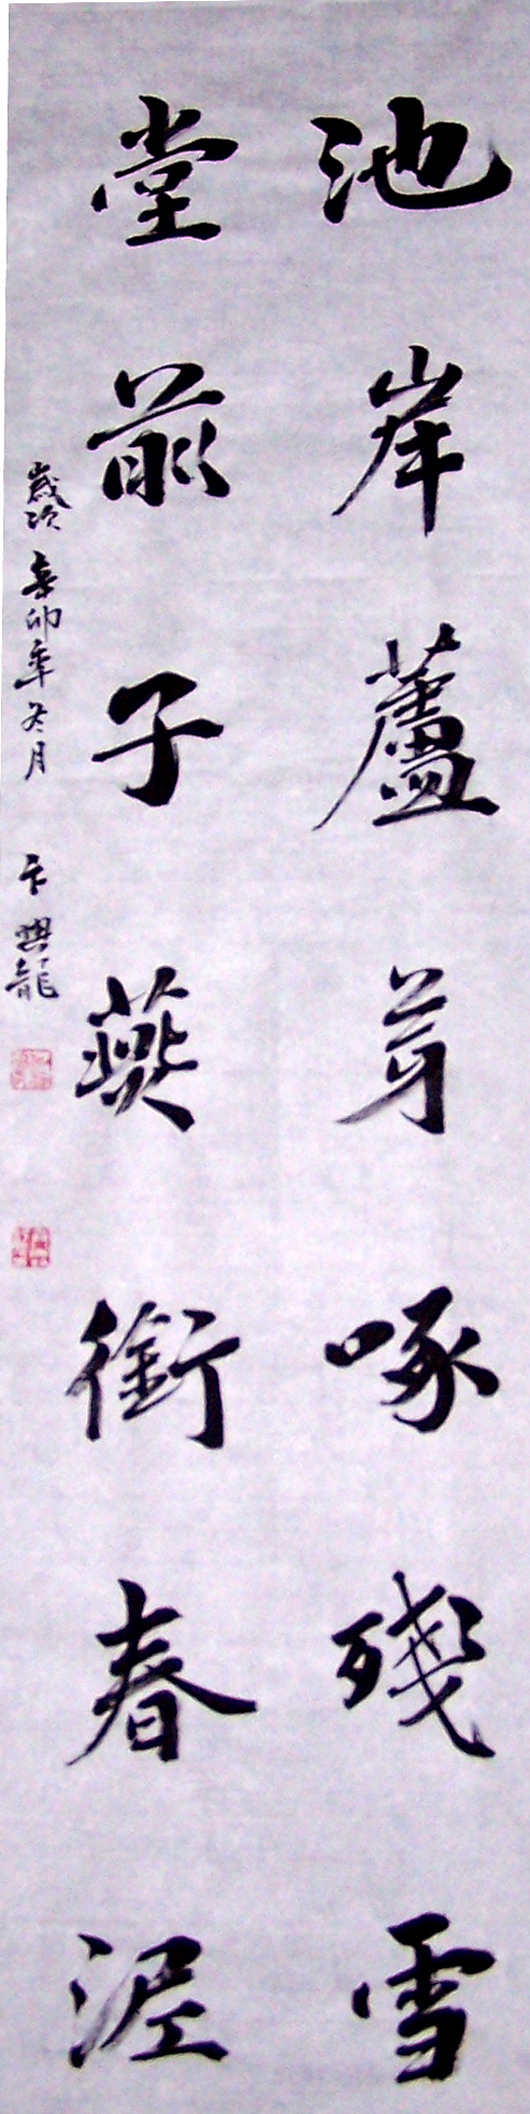 池岸蘆芽啄殘雪
堂前子燕銜春泥
歲次辛卯年冬月 卞興龍